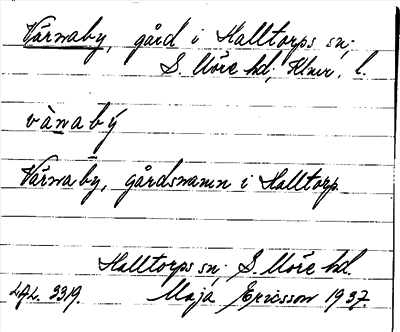 Värnaby, gård i Halltorps sn;
S. Möre hd; Klmr. l.
vànabý
Värnaby, gårdsnamn i Halltorp.
Halltorps sn; S. Möre hd.
LAL. 3319. Maja Ericsson 1937.